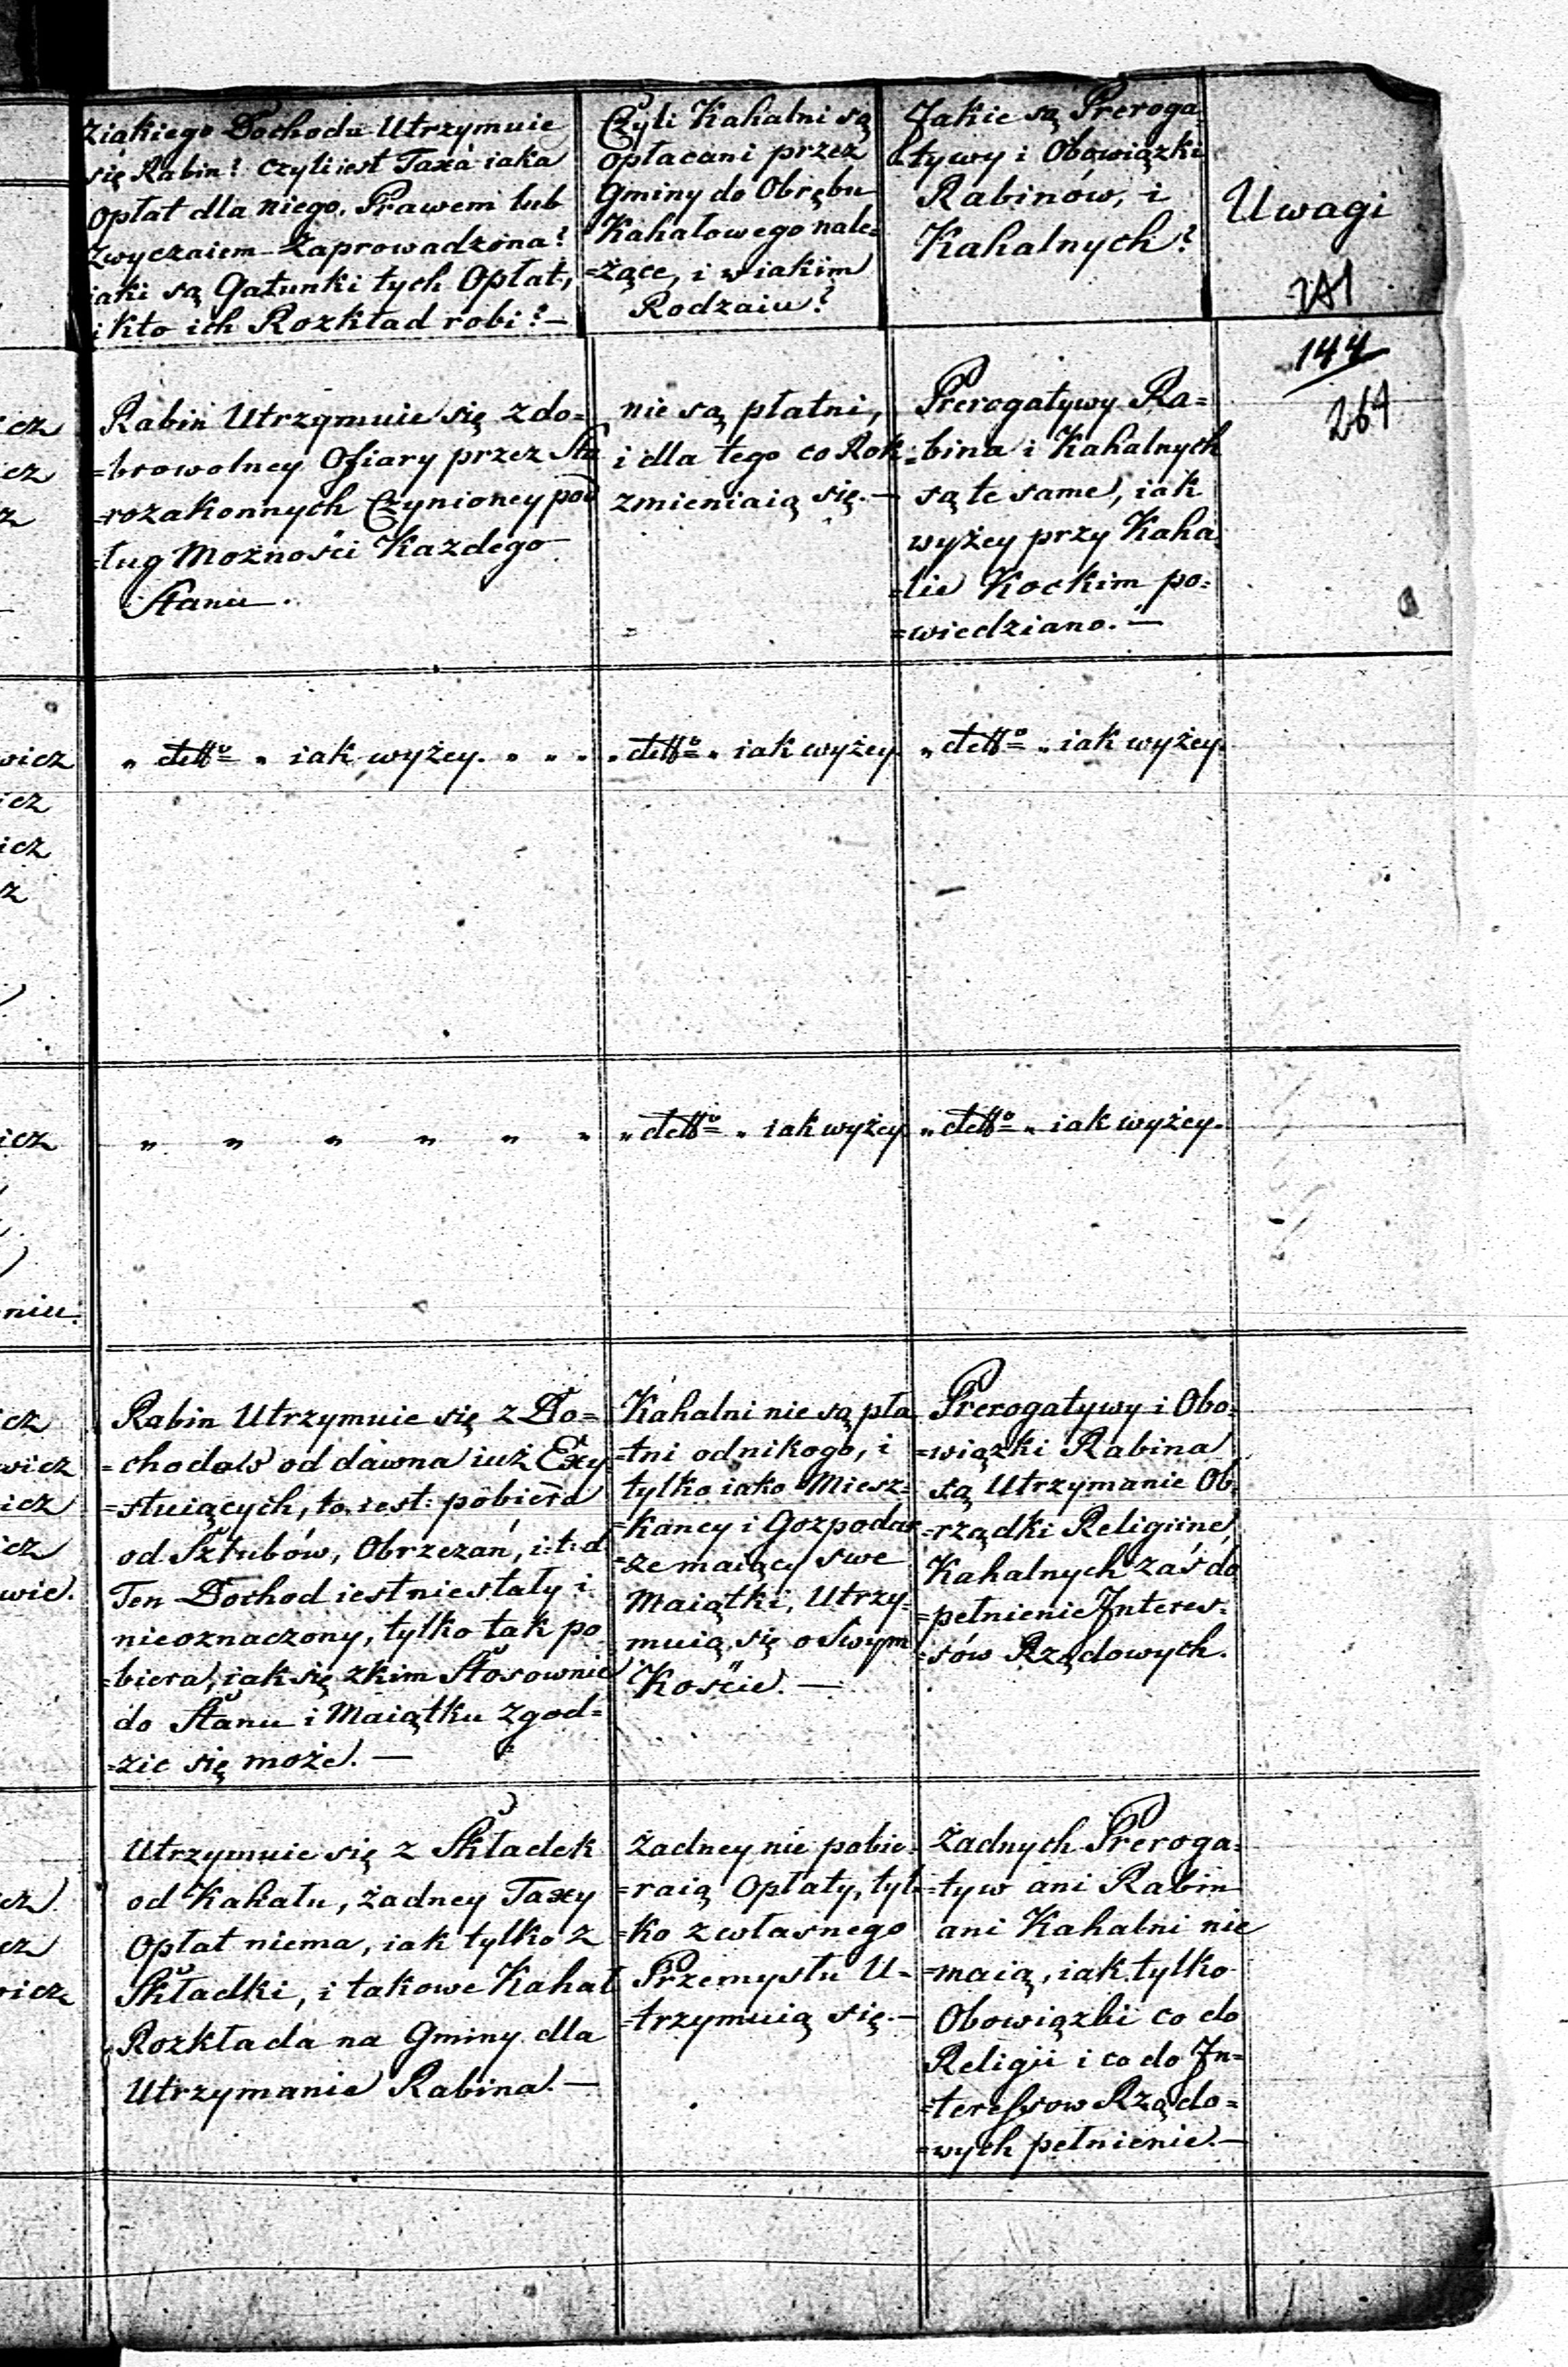 Ziakiego Dochodu Utrzymuie
się Rabin? czyli iest Taxa iaka
Opłat dla niego, Prawem lub
Zwyczaiem Zaprowadzona?
iaki są Gatunki tych Opłat,
i kto ich Rozkład robi?—
Czyli Kahalni są
opłacani przez
Gminy do Obrębu
Kahałowego nale=
=żące, i w iakim
Rodzaiu?
Jakie są Preroga
tywy i Obowiązki
Rabinów, i
Kahalnych?
Uwagi
144
264
Rabin Utrzymuie się z do=
=browolney Ofiary przez Sta
=rozakonnych Czynioney pod
=ług Możności Każdego
Stanu.
nie są płatni,
i dla tego co Rok
zmieniaią się.—
Prerogatywy Ra=
=bina i Kahalnych
są te same, iak
wyżey przy Kaha
=lie Kockim po=
=wiedziano.—
" detto " iak wyżey. " " "
" detto " iak wyżey.
" detto " iak wyżey.
" " " " " "
" detto " iak wyżey
" detto " iak wyżey.
Rabin Utrzymuie się z Do=
=chodów od dawna iuż Exy
=stuiących, to iest: pobiera
od Szlubów, Obrzezań, i: t: d
Ten Dochod iest niestały i
nieoznaczony, tylko tak po
=biera, iak się zkim Stosownie
do Stanu i Maiątku zgod=
=zic się może.—
Kahalni nie są pła
=tni od nikogo, i
tylko iako Miesz=
=kancy i Gozpodar
=ze maiący swe
Maiątki, Utrzy=
muią się o Swym
Koście.—
Prerogatywy i Obo=
=wiązki Rabina
są Utrzymanie Ob=
=rządki Religiine,
Kahalnych zaś do
=pełnienie Interes=
=sów Rządowych.
Utrzymuie się z Składek
od Kahału, żadney Taxy
Opłat niema, iak tylko z
Składki, i takowe Kahał
Rozkłada na Gminy dla
Utrzymania Rabina.—
Żadney nie pobie=
=raią Opłaty, tyl=
=ko z własnego
Przemysłu U=
=trzymuią się.—
Żadnych Preroga=
=tyw ani Rabin
ani Kahalni nie
=maią, iak tylko
Obowiązki co do
Religii i co do In=
=teressow Rządo=
=wych pełnienie.—
icz
wicz
icz
icz
niu.
icz
wicz
icz
icz
wie.
wicz